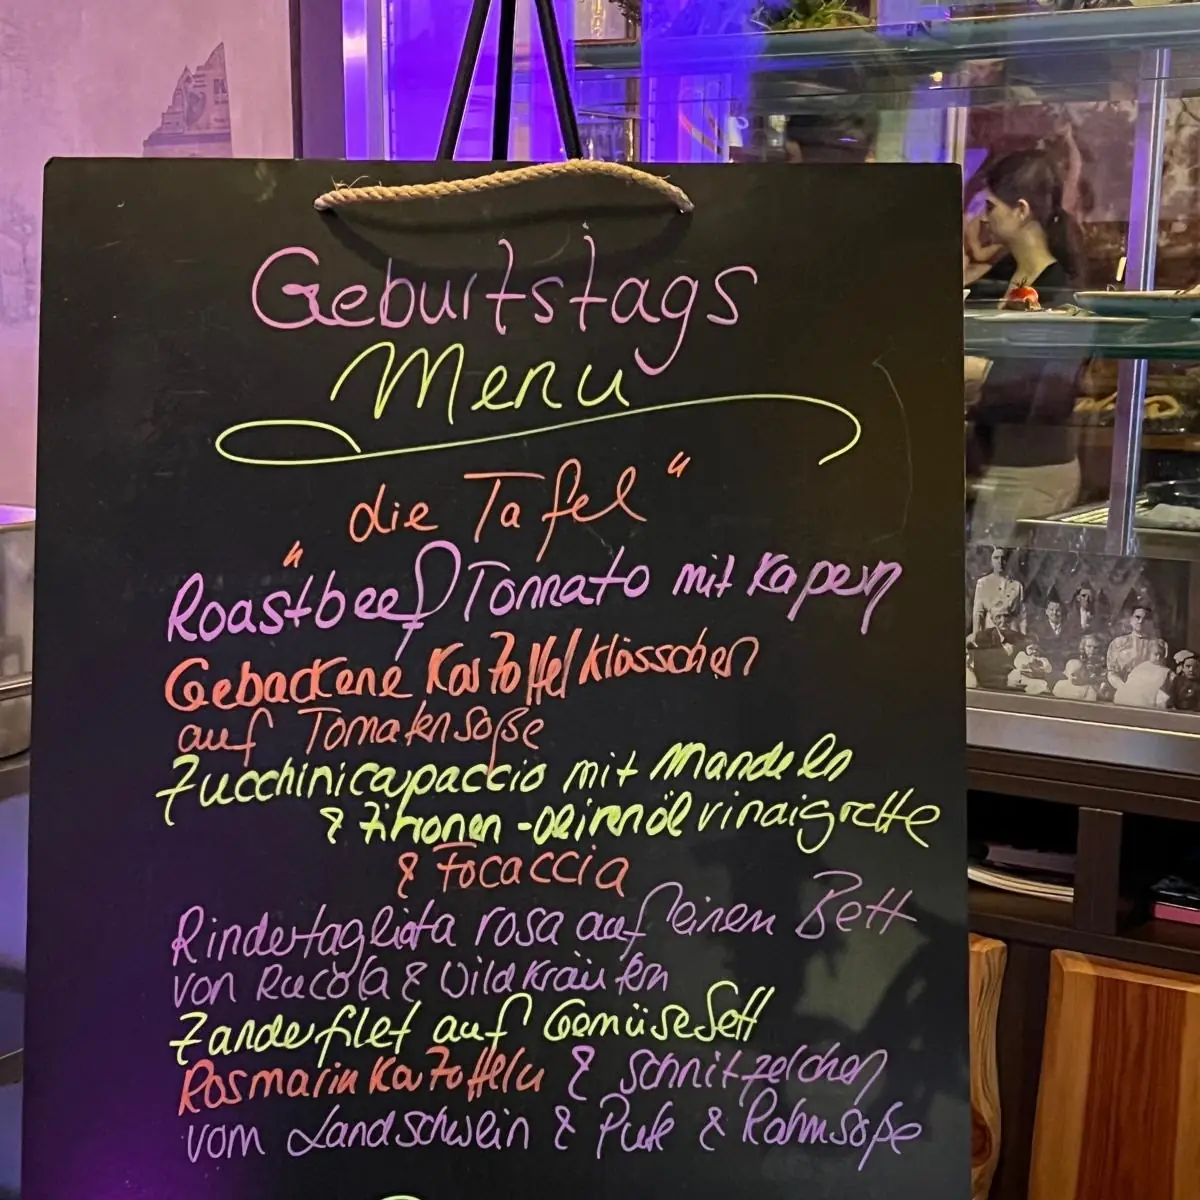 Geburtstags
Menu
die Tafel"
"
Roastbeef Tonnato mit Kapern
Gebackene Kartoffelklösschen
auf Tomatensoße
Zucchinicapaccio mit Mandeln
& Zitronen-olivenölvinaigrette
& Focaccia
Rindertagliata rosa auf einen Bett
von Rucola & Wildkräutern
Zanderfilet auf Gemüsebett
Rosmarinkartoffeln & Schnitzelchen
vom Landschwein & Pute & Rahmsoße